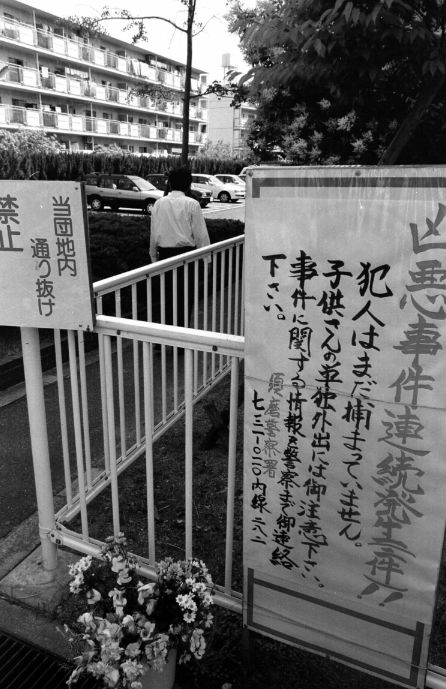 凶悪事件連続発生中!!
犯人はまだ捕まっていません。
子供さんの単独外出には御注意下さい。
事件に関する情報を警察まで御連絡
下さい。
須磨警察署
七三一-〇一二〇内線二八二
当団地内
通り抜け
禁止